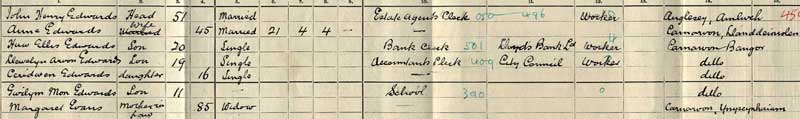 John Henry Edwards Head 51 Married Estate Agents Clerk 050 496 Worker Anglesey, Amlwch 450
Anne Edwards Wife Married 45 Married 21 4 4 — — Carnarvon, Llanddeiniolen
Huw Ellis Edwards Son 20 Single Bank Clerk 501 Lloyds Bank Ld Worker Carnarvon Bangor
Llewelyn Arvon Edwards Son 19 Single Accountants Clerk 409 City Council Worker ditto
Ceridwen Edwards daughter 16 Single — ditto
Gwilym Mon Edwards Son 11 School 390 0 ditto
Margaret Evans Mother in law 85 Widow Carnarvon,